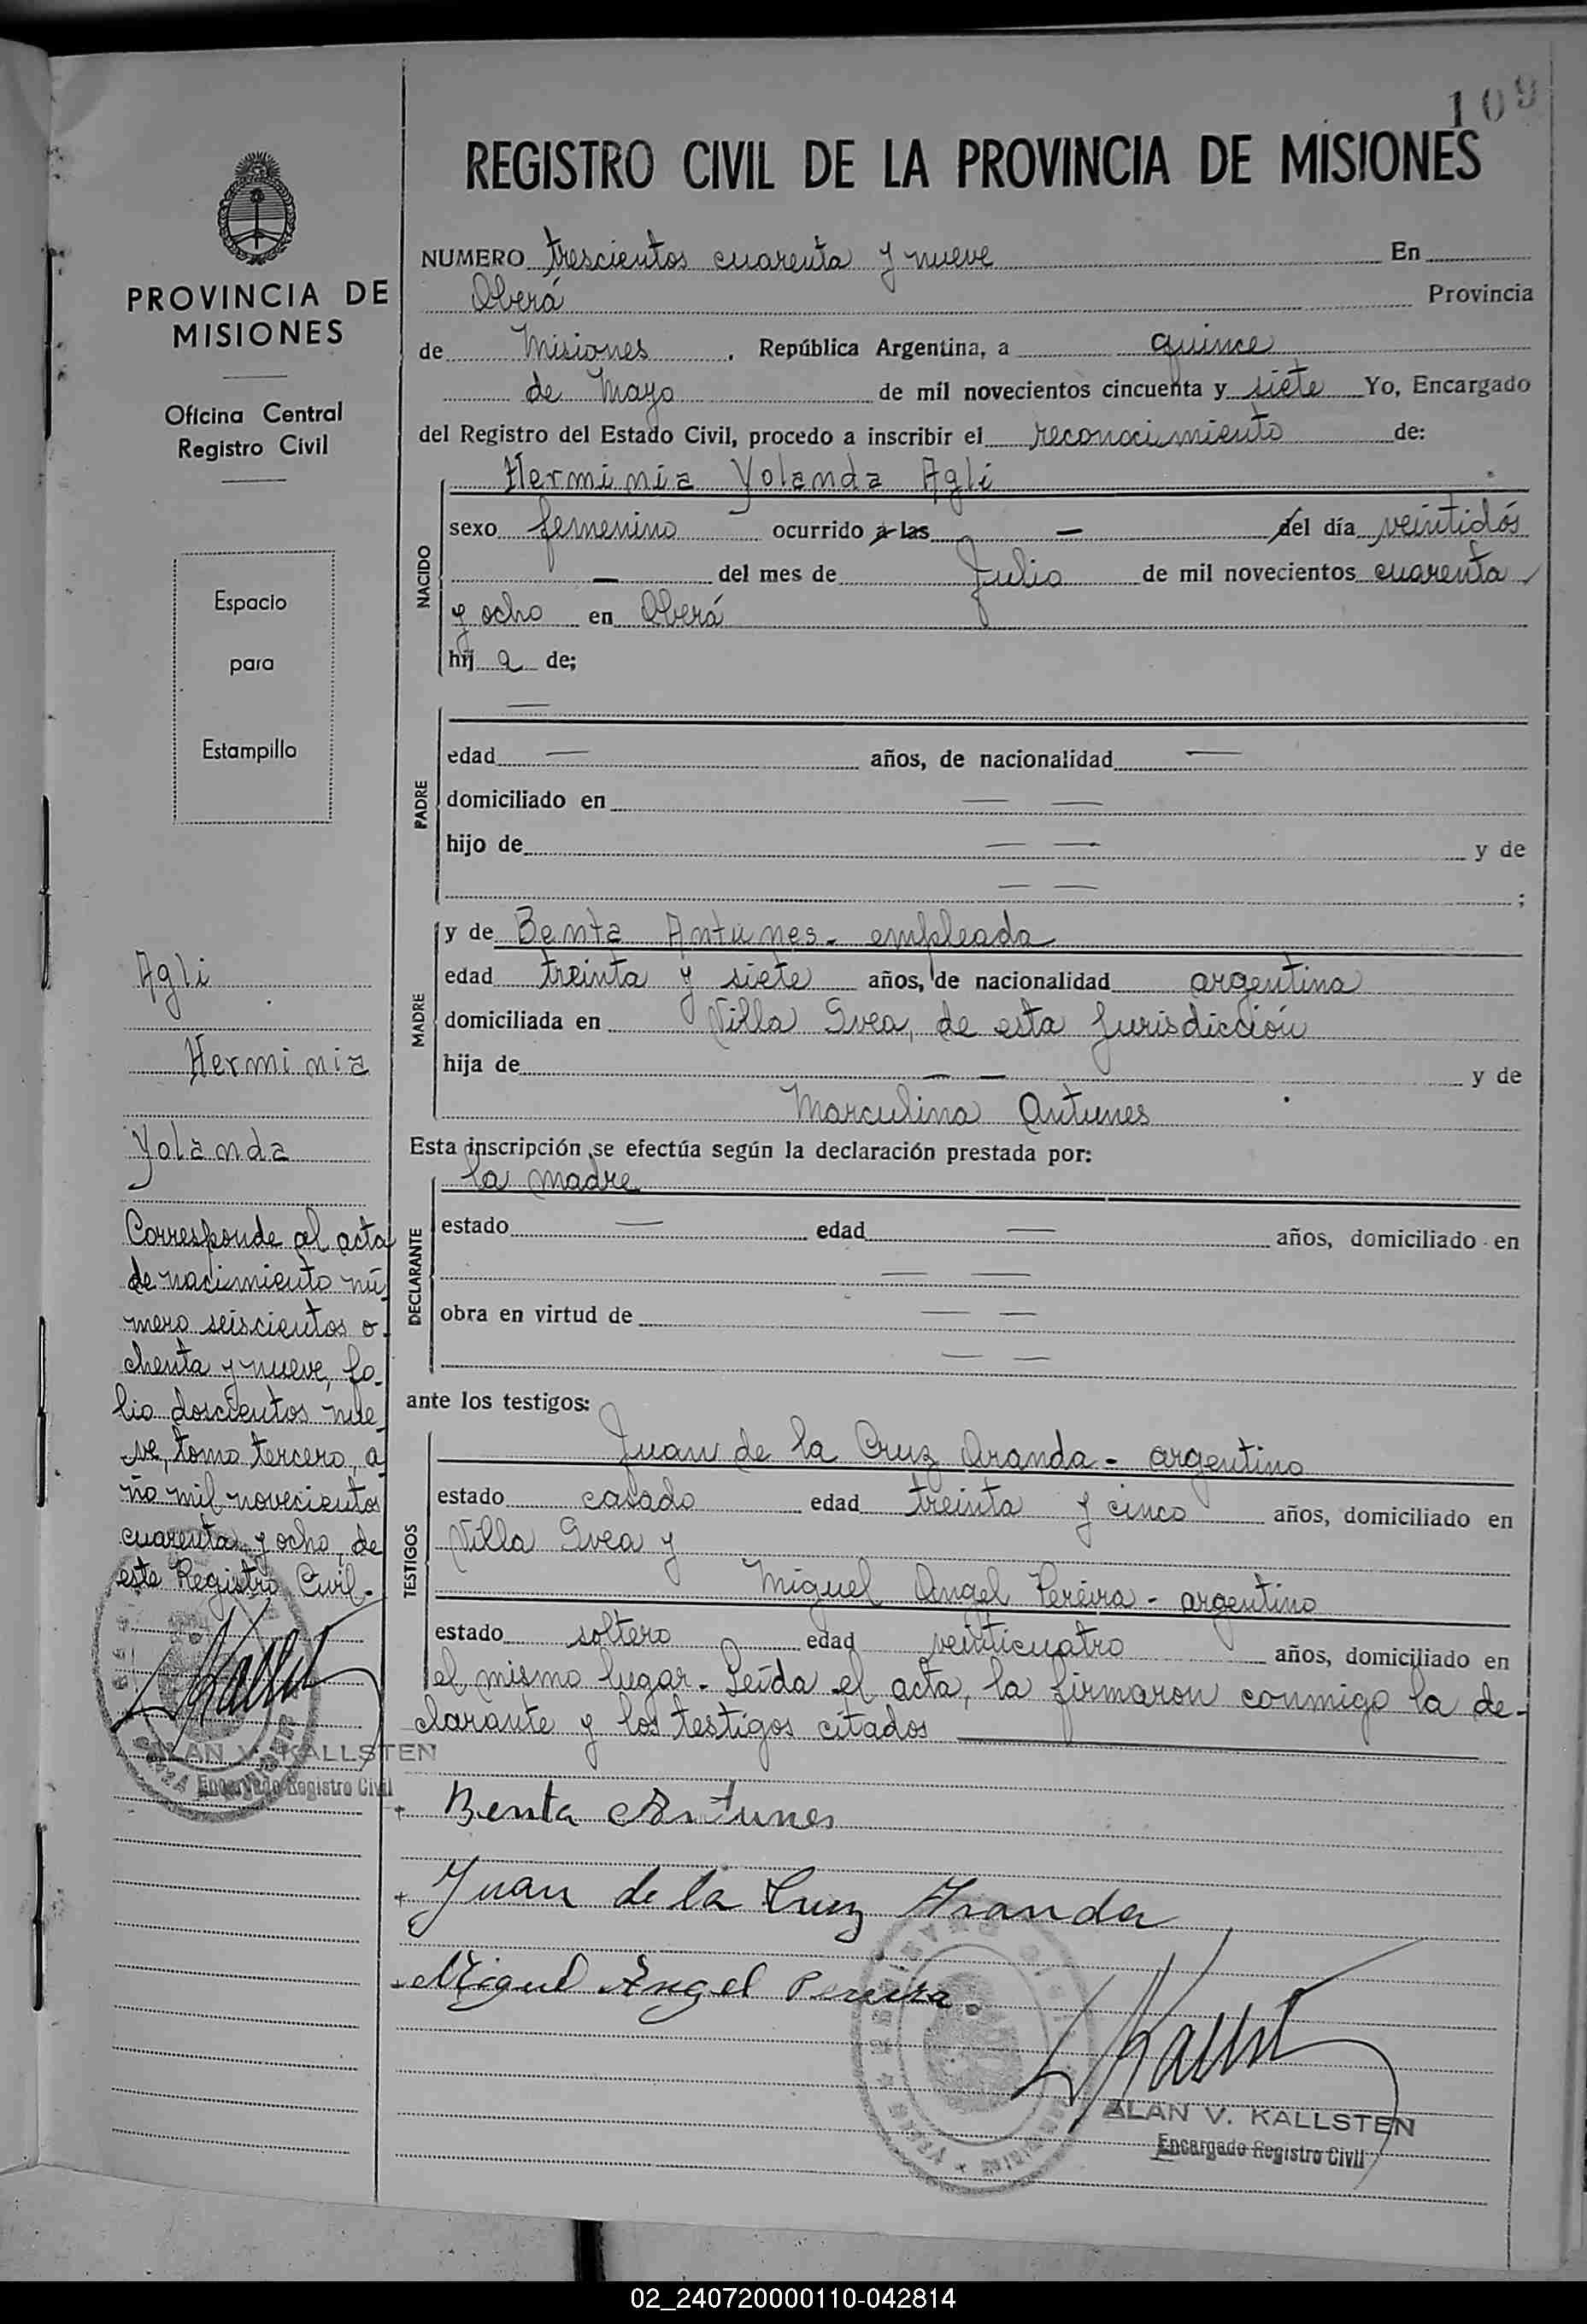 109
REGISTRO CIVIL DE LA PROVINCIA DE MISIONES
PROVINCIA DE
MISIONES
Oficina Central
Registro Civil
Espacio
para
Estampillo
Agli
Herminia
Yolanda
Corresponde al acta
de nacimiento nú
mero seiscientos o-
chenta y nueve, fo-
lio doscientos nue
ve, tomo tercero, a
ño mil novecientos
cuarenta y ocho, de
este Registro Civil.-
ALAN V. KALLSTEN
Encargado Registro Civil
NUMERO trescientos cuarenta y nueve En
Oberá Provincia
de Misiones . República Argentina, a quince
de Mayo de mil novecientos cincuenta y siete Yo, Encargado
del Registro del Estado Civil, procedo a inscribir el reconocimiento de:
NACIDO
Herminia Yolanda Agli
sexo femenino ocurrido a las — del día veintidós
— del mes de Julio de mil novecientos cuarenta
y ocho en Oberá
hij a de;
PADRE
—
edad — años, de nacionalidad —
domiciliado en — —
hijo de — — y de
— — ;
MADRE
y de Benta Antunes - empleada
edad treinta y siete años, de nacionalidad argentina
domiciliada en Villa Svea, de esta Jurisdicción
hija de — — y de
Marculina Antunes
Esta inscripción se efectúa según la declaración prestada por:
DECLARANTE
la madre
estado — edad — años, domiciliado en
— —
obra en virtud de — —
— —
ante los testigos:
TESTIGOS
Juan de la Cruz Aranda - argentino
estado casado edad treinta y cinco años, domiciliado en
Villa Svea y
Miguel Angel Pereira - argentino
estado soltero edad veinticuatro años, domiciliado en
el mismo lugar. Leída el acta, la firmaron conmigo la de-
clarante y los testigos citados
+ Benta Antunes
+ Juan de la Cruz Aranda
Miguel Angel Pereira.
ALAN V. KALLSTEN
Encargado Registro Civil
02_240720000110-042814